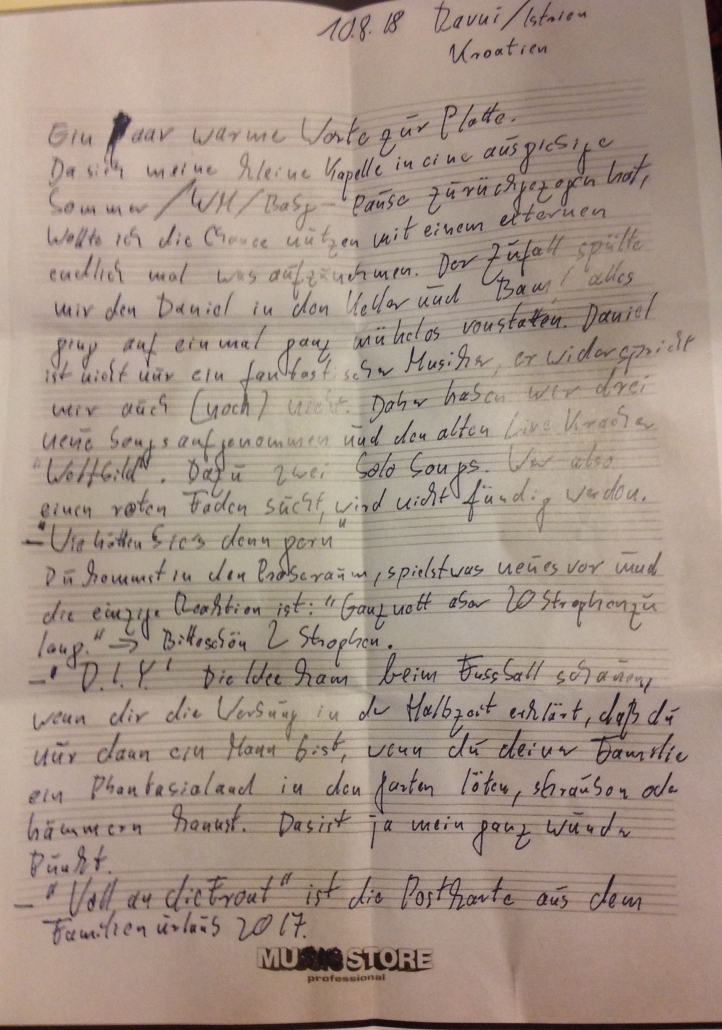 10.8.18 Ravni/Istrien
Kroatien
Ein paar warme Worte zur Platte.
Da sich meine kleine Kapelle in eine ausgiesige
Sommer/WM/Baby-Pause zurückgezogen hat,
wollte ich die Chance nutzen mit einem externen
endlich mal was aufzunehmen. Der Zufall spülte
mir den Daniel in den Keller und Bam! alles
ging auf einmal ganz mühelos vonstatten. Daniel
ist nicht nur ein fantastischer Musiker, er widerspricht
mir auch (noch) nicht. Daher haben wir drei
neue Songs aufgenommen und den alten Live Kracher
"Weltbild". Dazu zwei Solo Songs. Wer also
einen roten Faden sucht, wird nicht fündig werden.
- "Wie hätten Sie's denn gern"
Du kommst in den Proberaum, spielst was neues vor und
die einzige Reaktion ist: "Ganz nett aber 20 Strophen zu
lang." → Bitteschön 2 Strophen.
- "D.I.Y." Die Idee kam beim Fussball schauen,
wenn dir die Werbung in der Halbzeit erklärt, daß du
nur dann ein Mann bist, wenn du deiner Familie
ein Phantasialand in den Garten löten, schrauben oder
hämmern kannst. Das ist ja mein ganz wunder
Punkt.
- "Voll an die Front" ist die Postkarte aus dem
Familienurlaub 2017.
MUSIC STORE
professional